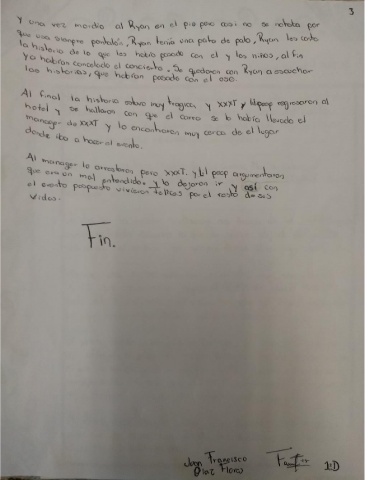 3
y una vez mordio al Ryan en el pie pero casi no se notaba por
que usa siempre pantalón, Ryan tenía una pata de palo, Ryan les conto
la historia de lo que les había pasado con el y los niños, al fin
ya habían cancelado el concierto, se quedaron con Ryan a escuchar
las historias, que habían pasado con el oso.
Al final la historia estuvo muy tragica, y XXXT y lil peep regresaron al
hotel y se hallaron con que el carro se lo había llevado el
manager de XXXT y lo encontraron muy cerca de el lugar
donde iba a hacer el evento.
Al manager lo arrestaron pero XXXT. y lil peep argumentaron
que era un mal entendido y lo dejaron ir y así con
el evento pospuesto vivieron felices por el resto de sus
vidas.
Fin.
Juan Francisco
Diaz Flores
1:D